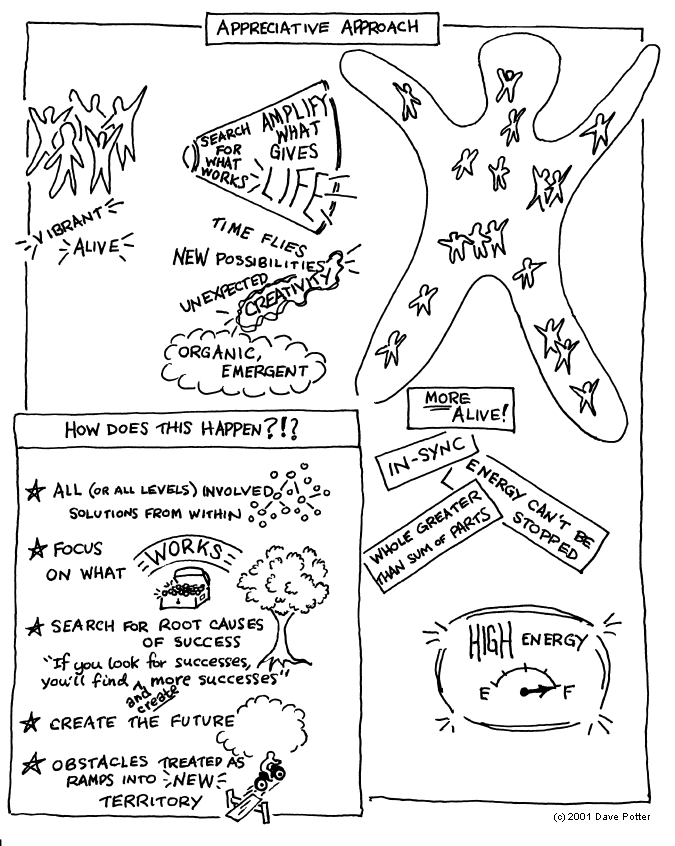 APPRECIATIVE APPROACH
VIBRANT
ALIVE
SEARCH
FOR
WHAT
WORKS
AMPLIFY
WHAT
GIVES
LIFE
TIME FLIES
NEW POSSIBILITIES
UNEXPECTED
CREATIVITY
ORGANIC,
EMERGENT
MORE
ALIVE!
IN-SYNC
ENERGY CAN'T BE
STOPPED
WHOLE GREATER
THAN SUM OF PARTS
HIGH ENERGY
E F
HOW DOES THIS HAPPEN?!?
ALL (OR ALL LEVELS) INVOLVED
SOLUTIONS FROM WITHIN
FOCUS
ON WHAT
WORKS
SEARCH FOR ROOT CAUSES
OF SUCCESS
"If you look for successes,
you'll find more successes"
and
create
CREATE THE FUTURE
OBSTACLES TREATED AS
RAMPS INTO NEW
TERRITORY
(c) 2001 Dave Potter